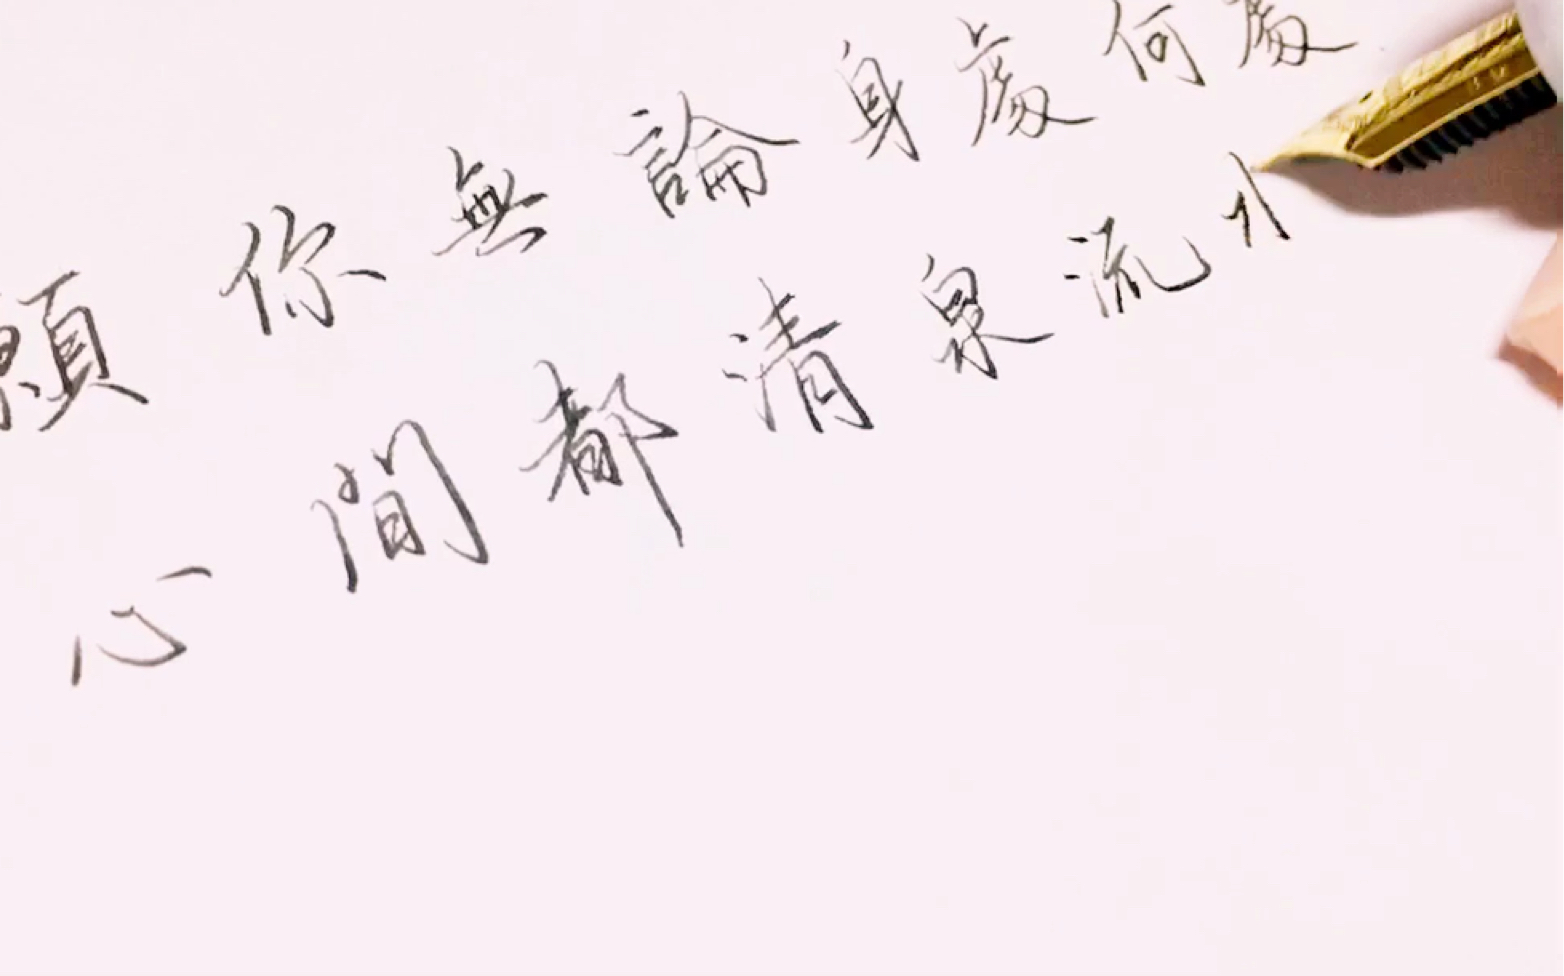 願你無論身處何處
心間都清泉流水